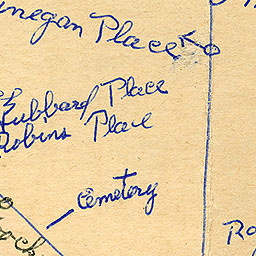 negan Place
Hubbard Place
Robins Place
Cemetery
Ro
ock